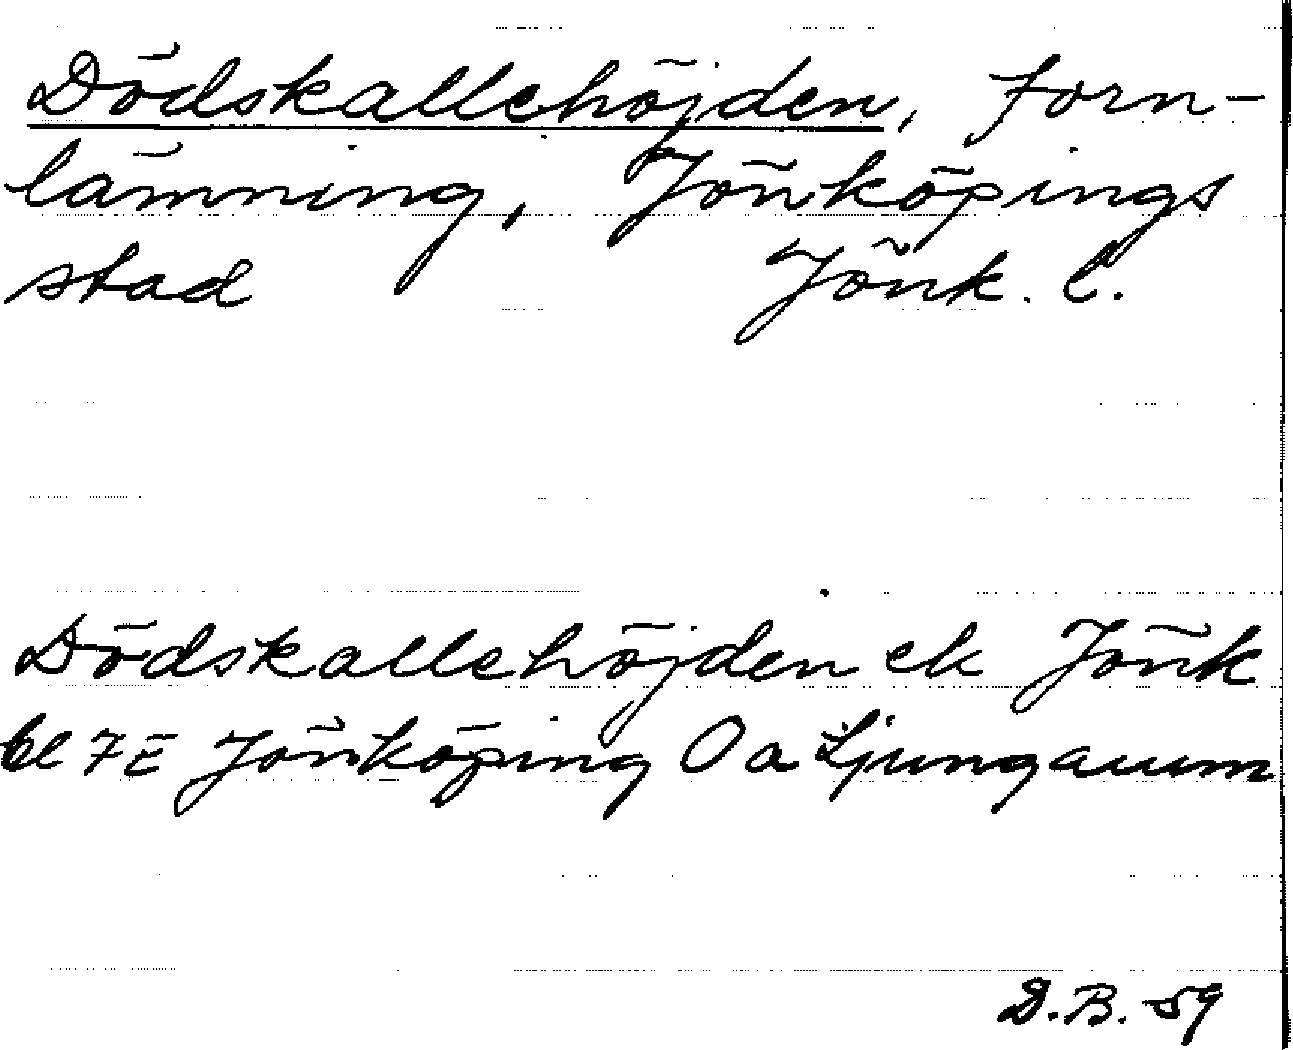 Dödskallehöjden, forn-
lämning, Jönköpings
stad Jönk. l.
Dödskallehöjden ek Jönk
bl 7E Jönköping O a Ljungarum
D.B. 59